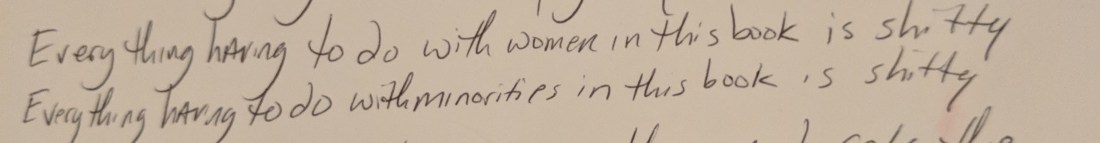 Everything having to do with women in this book is shitty
Everything having to do with minorities in this book is shitty